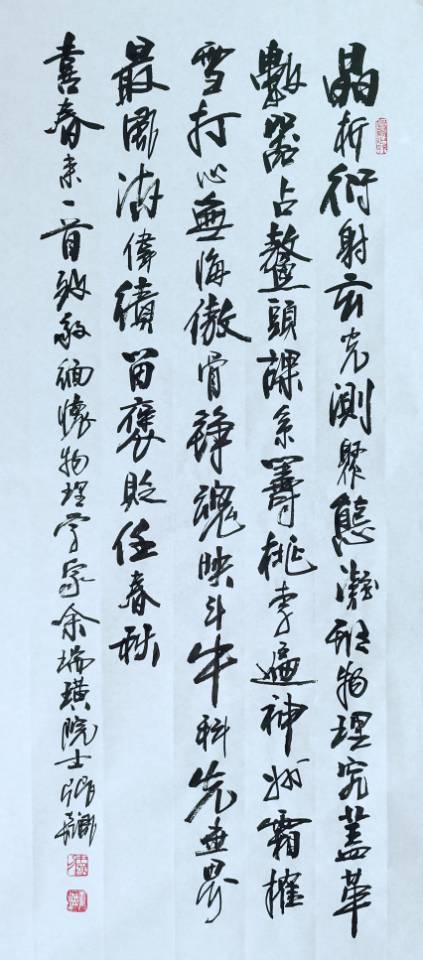 晶析衍射玄光測聚態凝班物理究蓋革
數器占鰲頭課系籌桃李遍神州霜摧
雪打心無悔傲骨錚魂映斗牛科先界
最風流偉績留褒貶任春秋
喜春来一首致敬緬懷物理学家余瑞璜院士